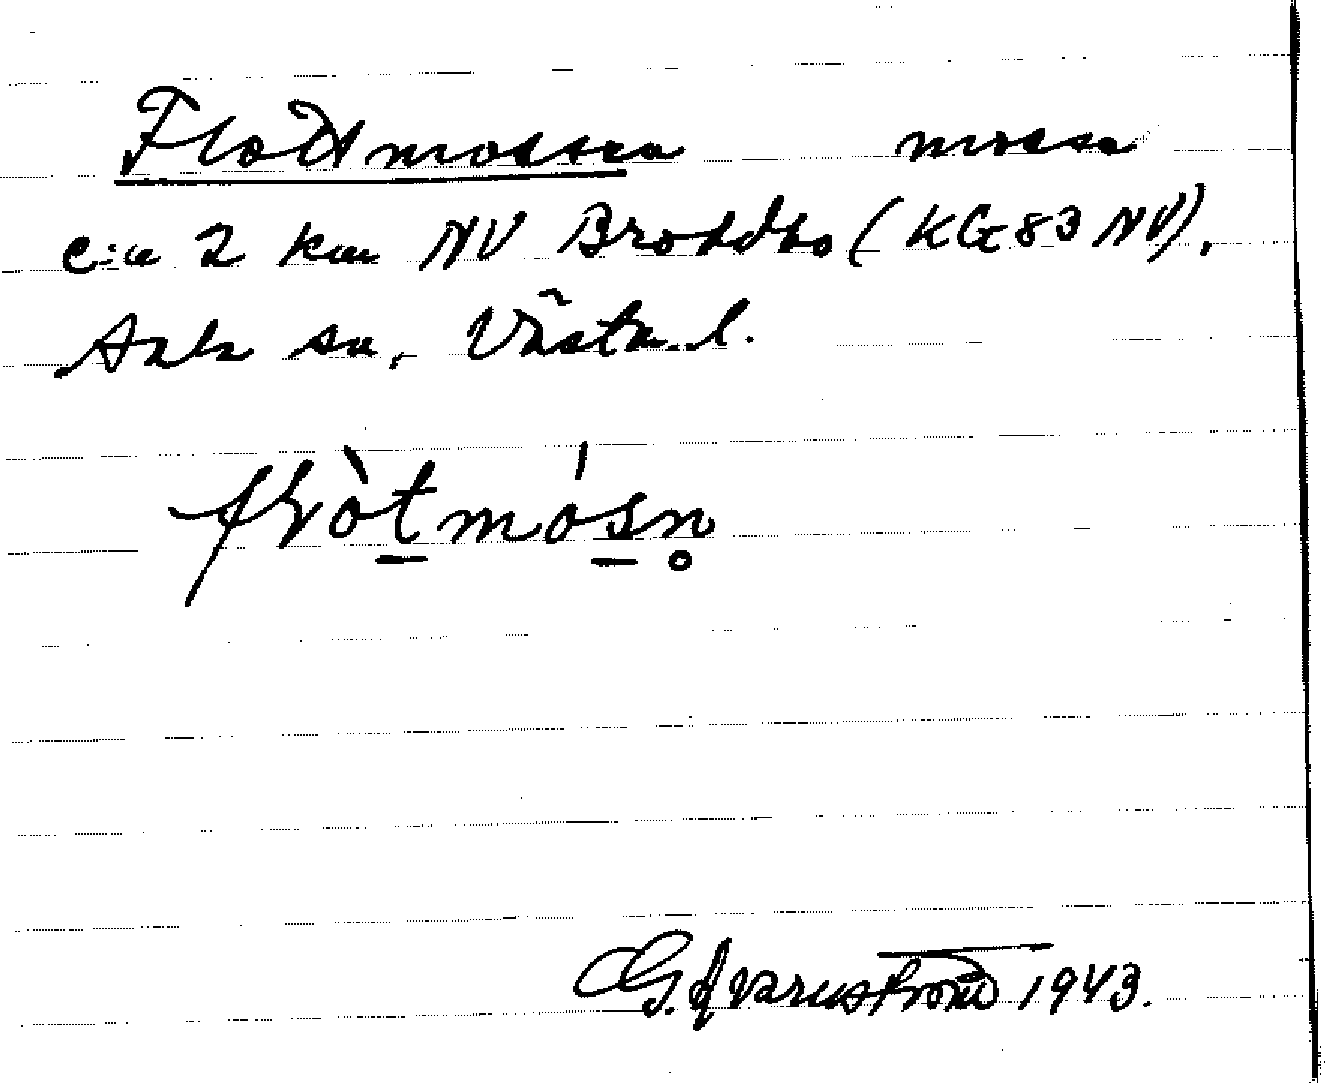 Flottmossen mossa
c:a 2 km NV Broddbo (KG 83 NV).
Sala sn, Västm. l.
flòtmósn̥
G. Qvarnström 1943.